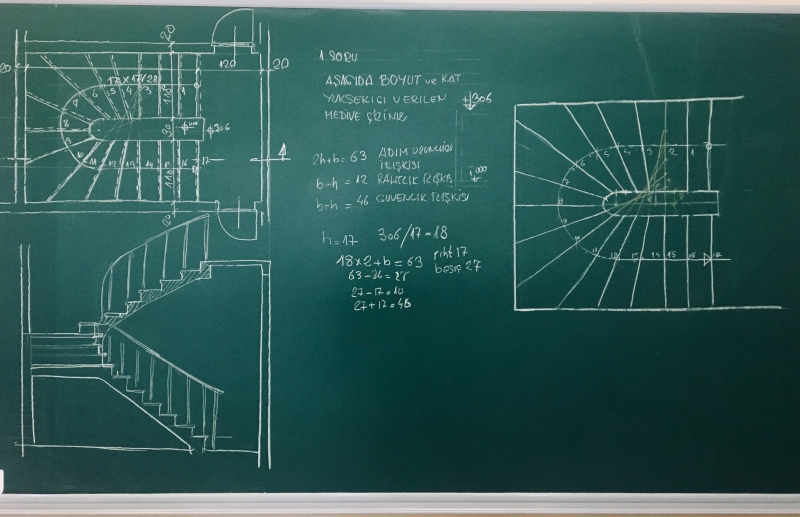 20
20
120
20
17x17/28
110
30
110
20
306
1 2 3 4 5 6 7 8 9 10 11 12 13 14 15 16 17
1 SORU
AŞAĞIDA BOYUT ve KAT
YÜKSEKLİĞİ VERİLEN
MEDİVE ÇİZİNİZ
+306
2h+b= 63 ADIM UZUNLUĞU
İLİŞKİSİ
b-h = 12 RAHTLIK İLİŞKİSİ
b+h = 46 GÜVENLİK İLİŞKİSİ
h=17 306/17=18
18x2+b=63 rıht 17
63-36=27 basış 27
27-17=10
27+17=46
1 2 3 4 5 6 7 8 9 11 12 13 14 15 16 17